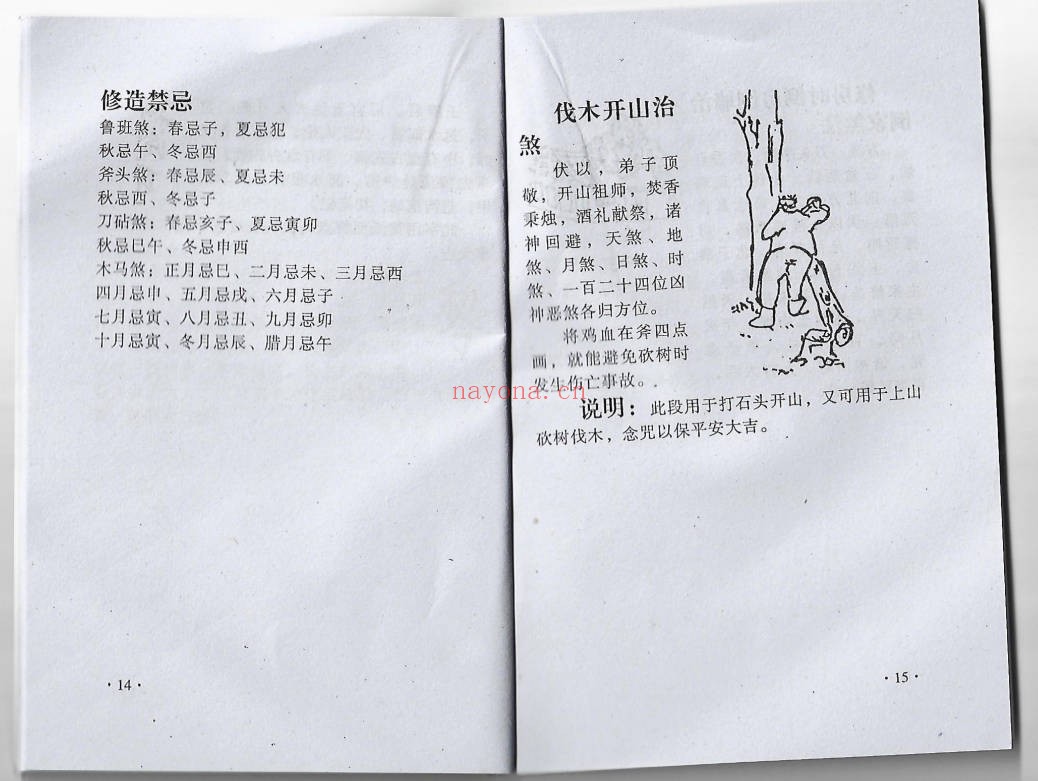 修造禁忌
鲁班煞：春忌子，夏忌犯
秋忌午、冬忌酉
斧头煞：春忌辰、夏忌未
秋忌酉、冬忌子
刀砧煞：春忌亥子、夏忌寅卯
秋忌巳午、冬忌申酉
木马煞：正月忌巳、二月忌未、三月忌酉
四月忌申、五月忌戌、六月忌子
七月忌寅、八月忌丑、九月忌卯
十月忌寅、冬月忌辰、腊月忌午
·14·
伐木开山治
煞
伏以，弟子顶
敬，开山祖师，焚香
秉烛，酒礼献祭，诸
神回避，天煞、地
煞、月煞、日煞、时
煞、一百二十四位凶
神恶煞各归方位。
将鸡血在斧四点
画，就能避免砍树时
发生伤亡事故。
说明：此段用于打石头开山，又可用于上山
砍树伐木，念咒以保平安大吉。
·15·
nayona.cn